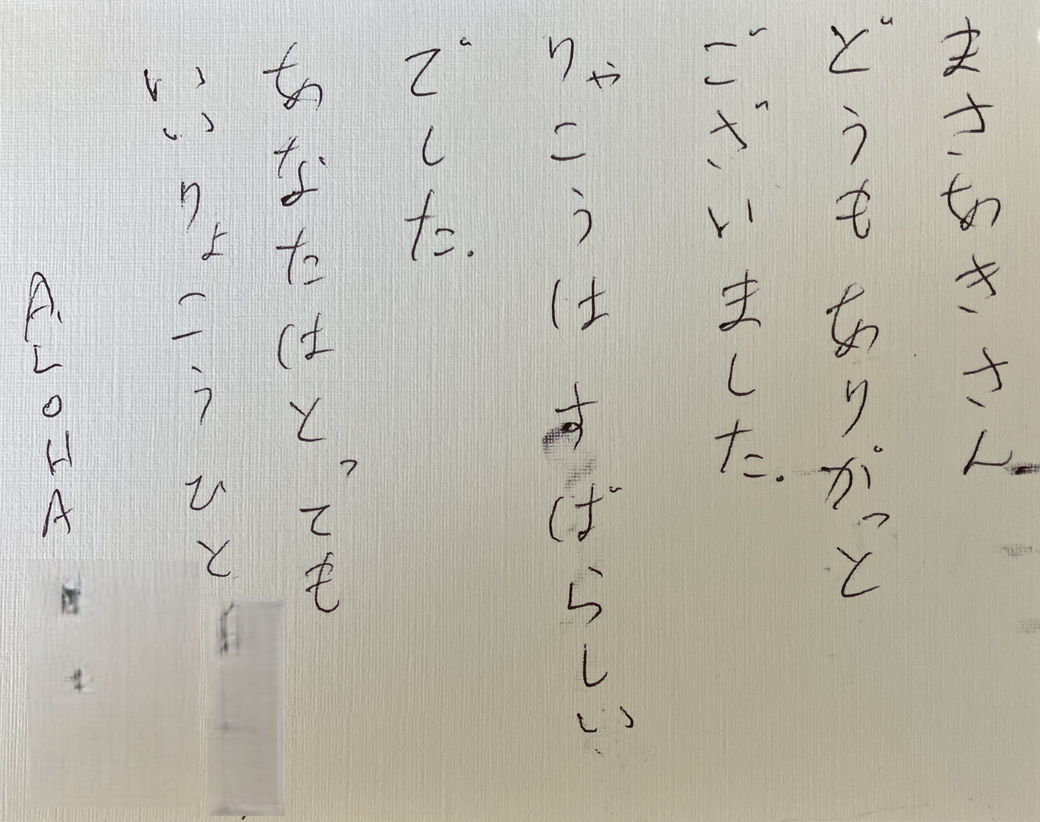 まさあきさん
どうもありがっと
ございました.
りゃこうはすばらしい
でした.
あなたはとっても
いいりょこうひと
ALOHA